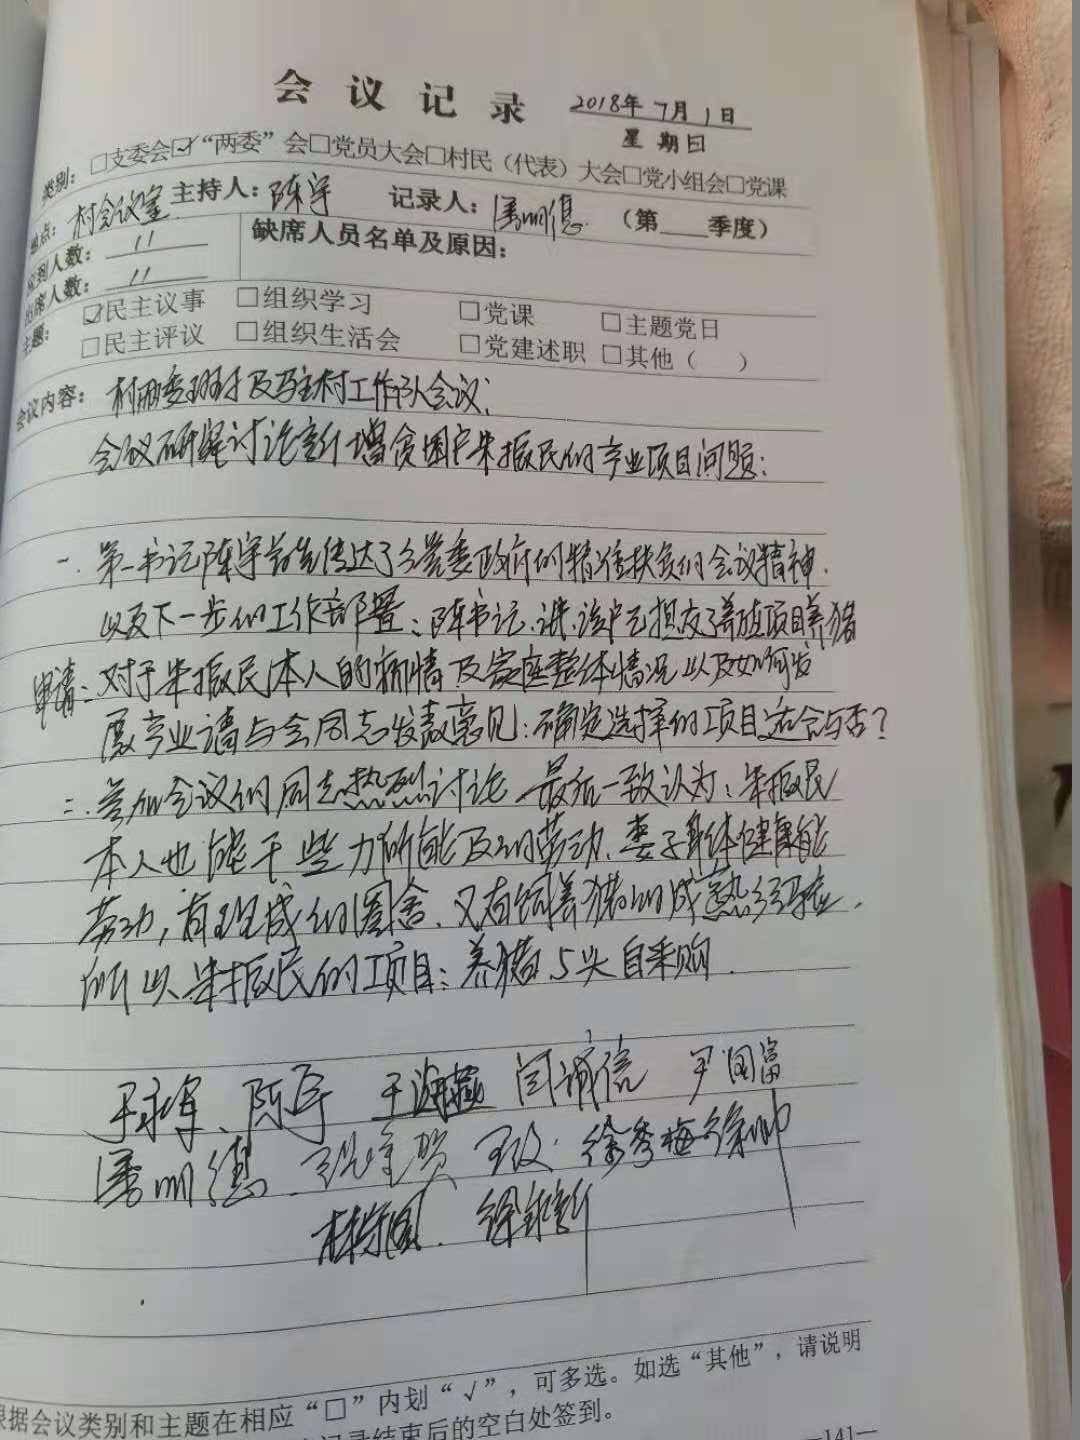 会议记录 2018年7月1日
星期日
类别：□支委会☑“两委”会□党员大会□村民（代表）大会□党小组会□党课
地点：村会议室 主持人：陈宇 记录人：潘明德 （第 季度）
应到人数：11 缺席人员名单及原因：
出席人数：11
主题：☑民主议事 □组织学习 □党课 □主题党日
□民主评议 □组织生活会 □党建述职 □其他（ ）
会议内容：村两委班子及驻村工作队会议：
会议研究讨论新增贫困户朱振民的产业项目问题：
一. 第一书记陈宇首先传达了乡党委政府的精准扶贫的会议精神.
以及下一步的工作部署；陈书记讲,该户已提交了养殖项目养猪
申请：对于朱振民本人的病情及家庭整体情况以及如何发
展产业请与会同志发表意见：确定选择的项目适合与否？
二. 参加会议的同志热烈讨论 最后一致认为：朱振民
本人也能干些力所能及的劳动.妻子身体健康能
劳动，有现成的圈舍.又有饲养猪的成熟经验.
所以朱振民的项目：养猪5头自采购.
陈宇 王海燕 闫诚信 尹国富
潘明德 徐秀梅 徐帅
根据会议类别和主题在相应“□”内划“√”，可多选。如选“其他”，请说明
记录结束后的空白处签到。
—141—